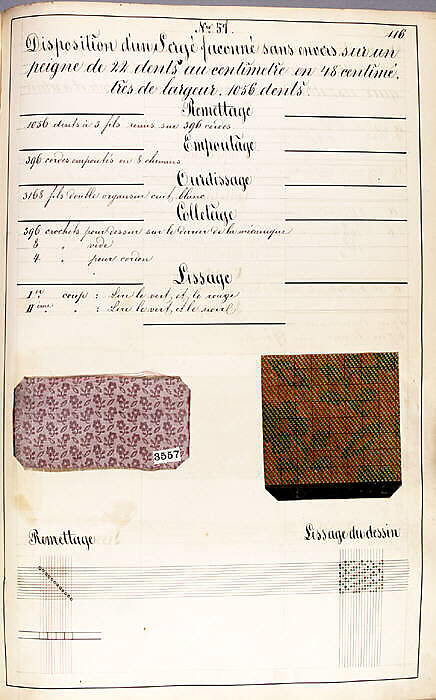 116
No. 57.
Disposition d'un Sergé façonné sans envers sur un
peigne de 22 dents au centimètre en 48 centimè.
tres de largeur. 1056 dents.
Remettage
1056 dents à 3 fils remis sur 396 cordes
Empoutage
396 cordes empoutés en 8 chemins
Ourdissage
3168 fils double organsin cuit, blanc
Colletage
396 crochets pour dessur sur le derrier de la mécanique
8 " vide
4 " pour cordon
Lissage
I re coup : Lire le vert, et le rouge
II ème " : Lire le vert, et le noir
3557
Remettage
Lissage du dessin